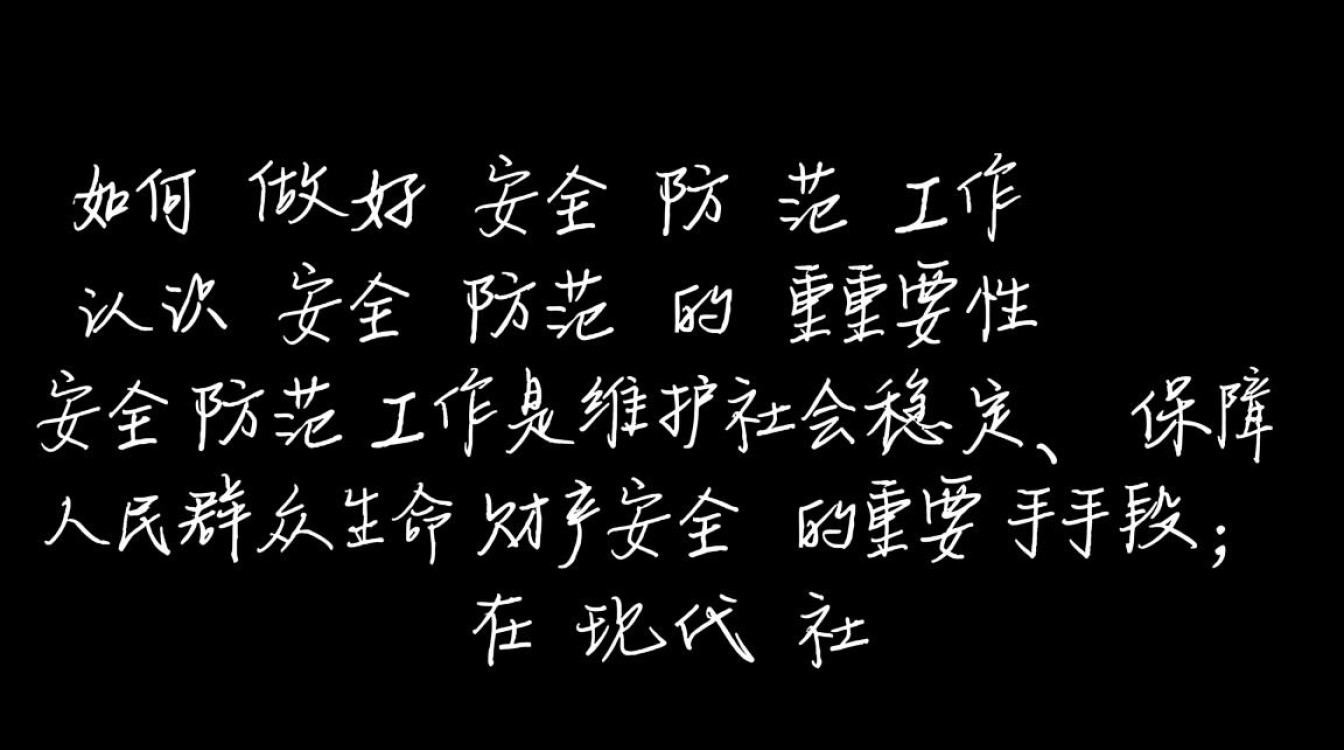 如何 做好 安全 防 范 工作
认识 安全 防范 的 重重要性
安全防范工作是维护社会稳定、 保障
人民群众生命财产安全 的重要手手段;
在 现代 社